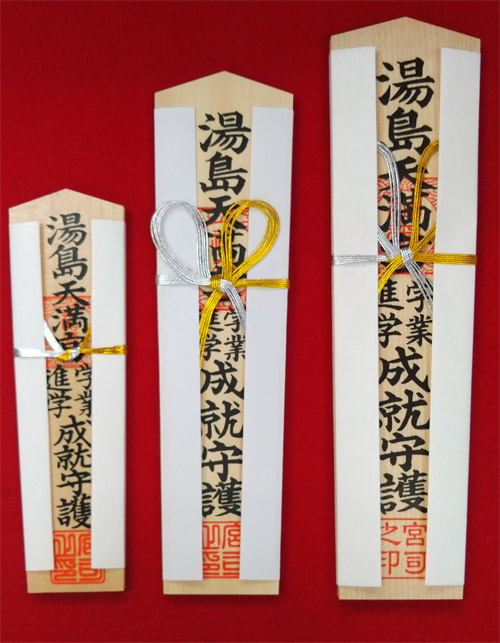 湯島天満宮
学業
進学
成就守護
湯島天満
学業
進学
成就守護
湯島天満
学業
進学
成就守護
宮司
之印